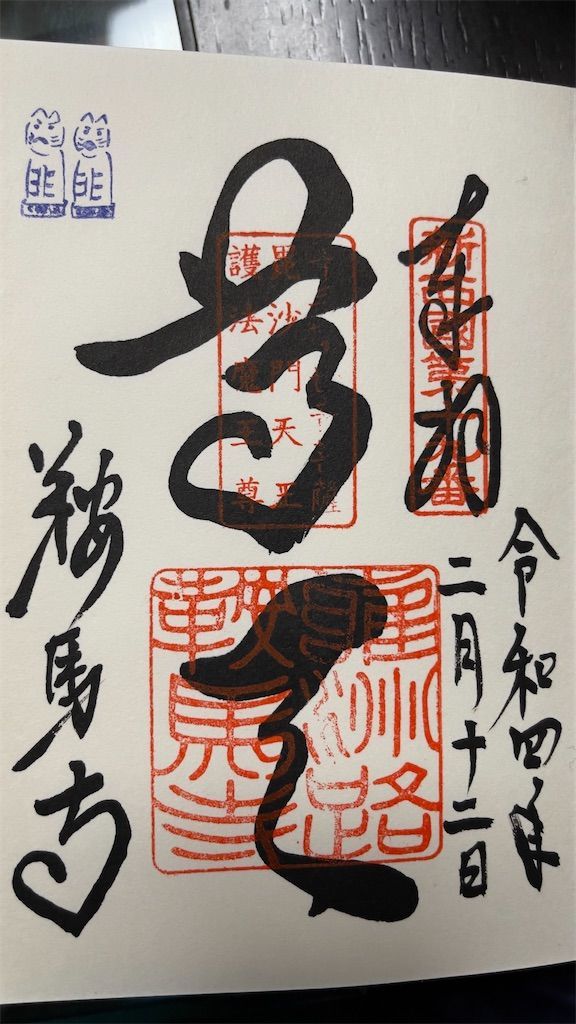 令和四年
二月十二日
奉拝
新西國第十九番
尊天
毘沙門天王
護法魔王尊
鞍馬寺
鞍馬寺